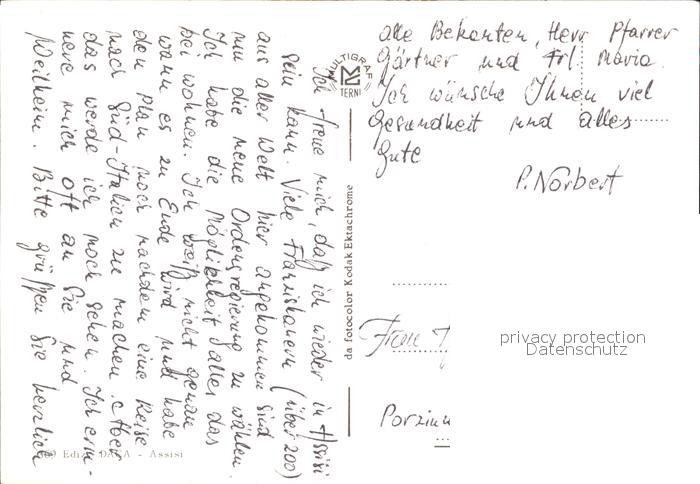 Ich freue mich, daß ich wieder in Assisi
sein kann. Viele Franziskanern (über 200)
aus aller Welt hier angekommen sind
um die neue Ordensregierung zu wählen.
Ich habe die Möglichkeit alles das
bei wohnen. Ich weiß nicht genau
wann es zu Ende wird und habe
den Plan noch nachdem eine Reise
nach Süd-Italien zu machen. Aber
das werde ich noch sehen. Ich erin-
nere mich oft an Sie und
Weilheim. Bitte grüßen Sie herzlich
alle Bekanten, Herr Pfarrer
Gärtner und Frl. Maria.
Ich wünsche Ihnen viel
Gesundheit und alles
Gute
P. Norbert
MULTIGRAF
TERNI
da fotocolor Kodak Ektachrome
Ediz. DACA - Assisi
privacy protection
Datenschutz